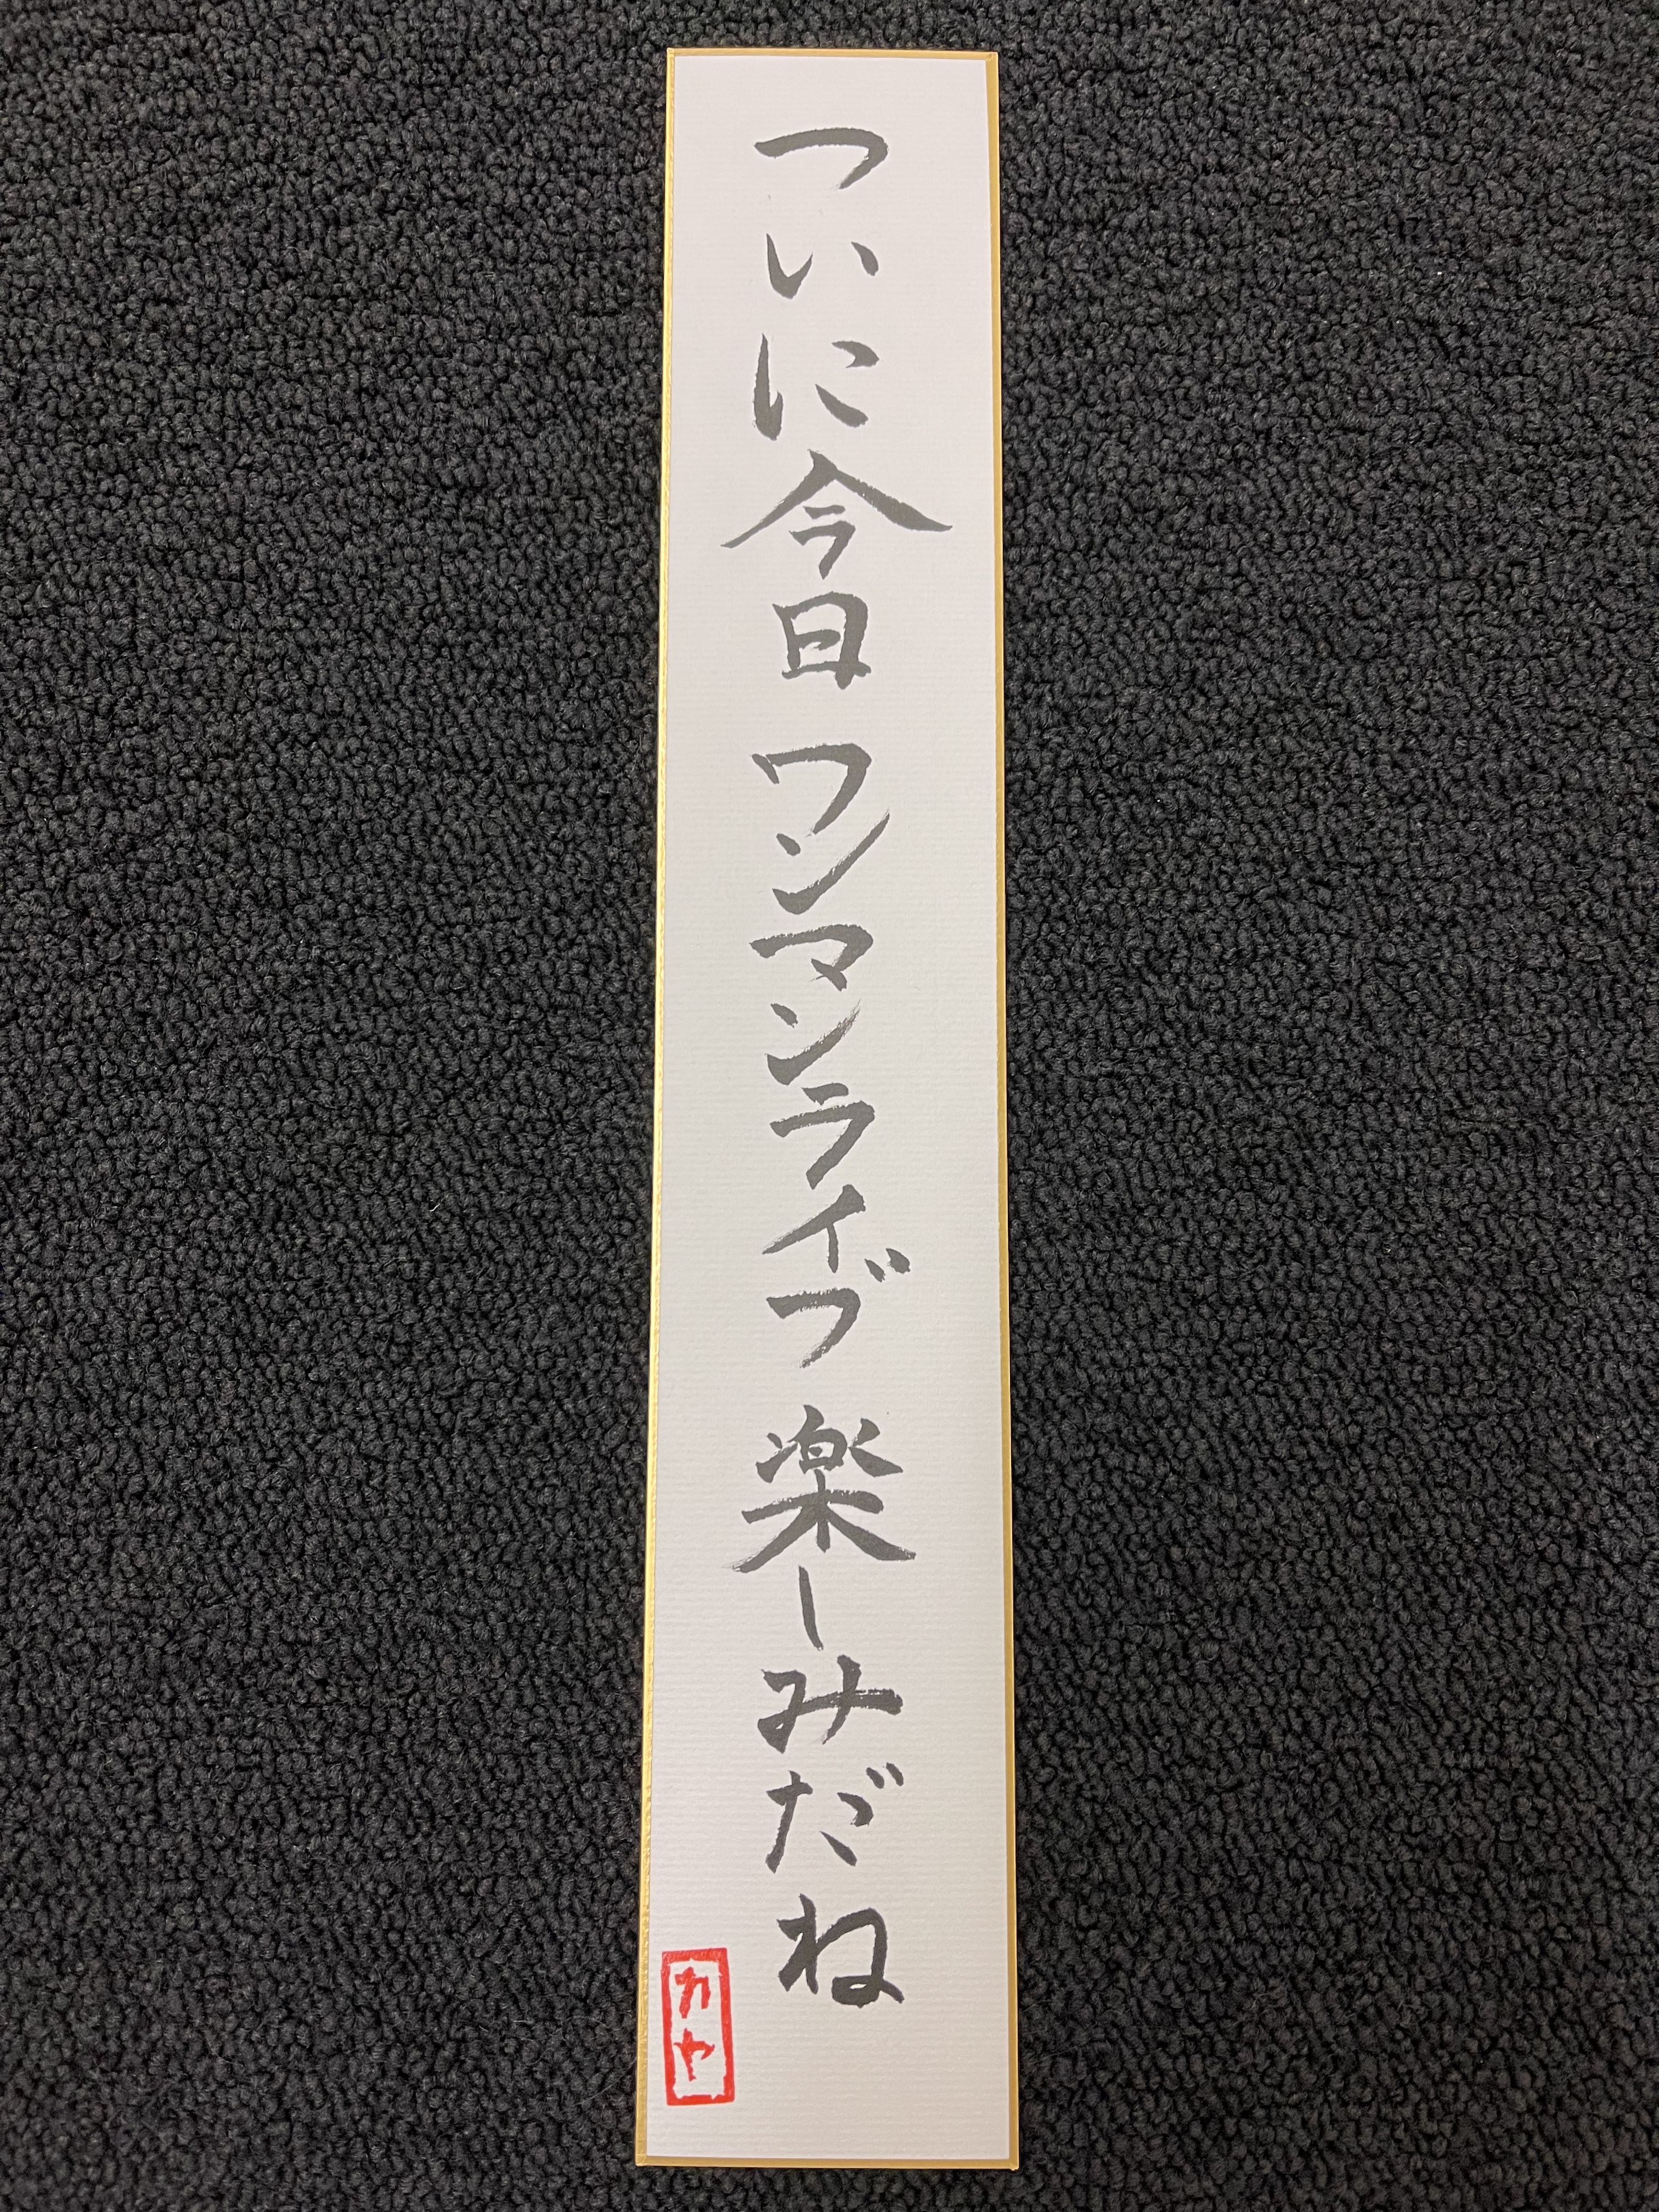 ついに今日ワンマンライブ楽しみだね
カヤ